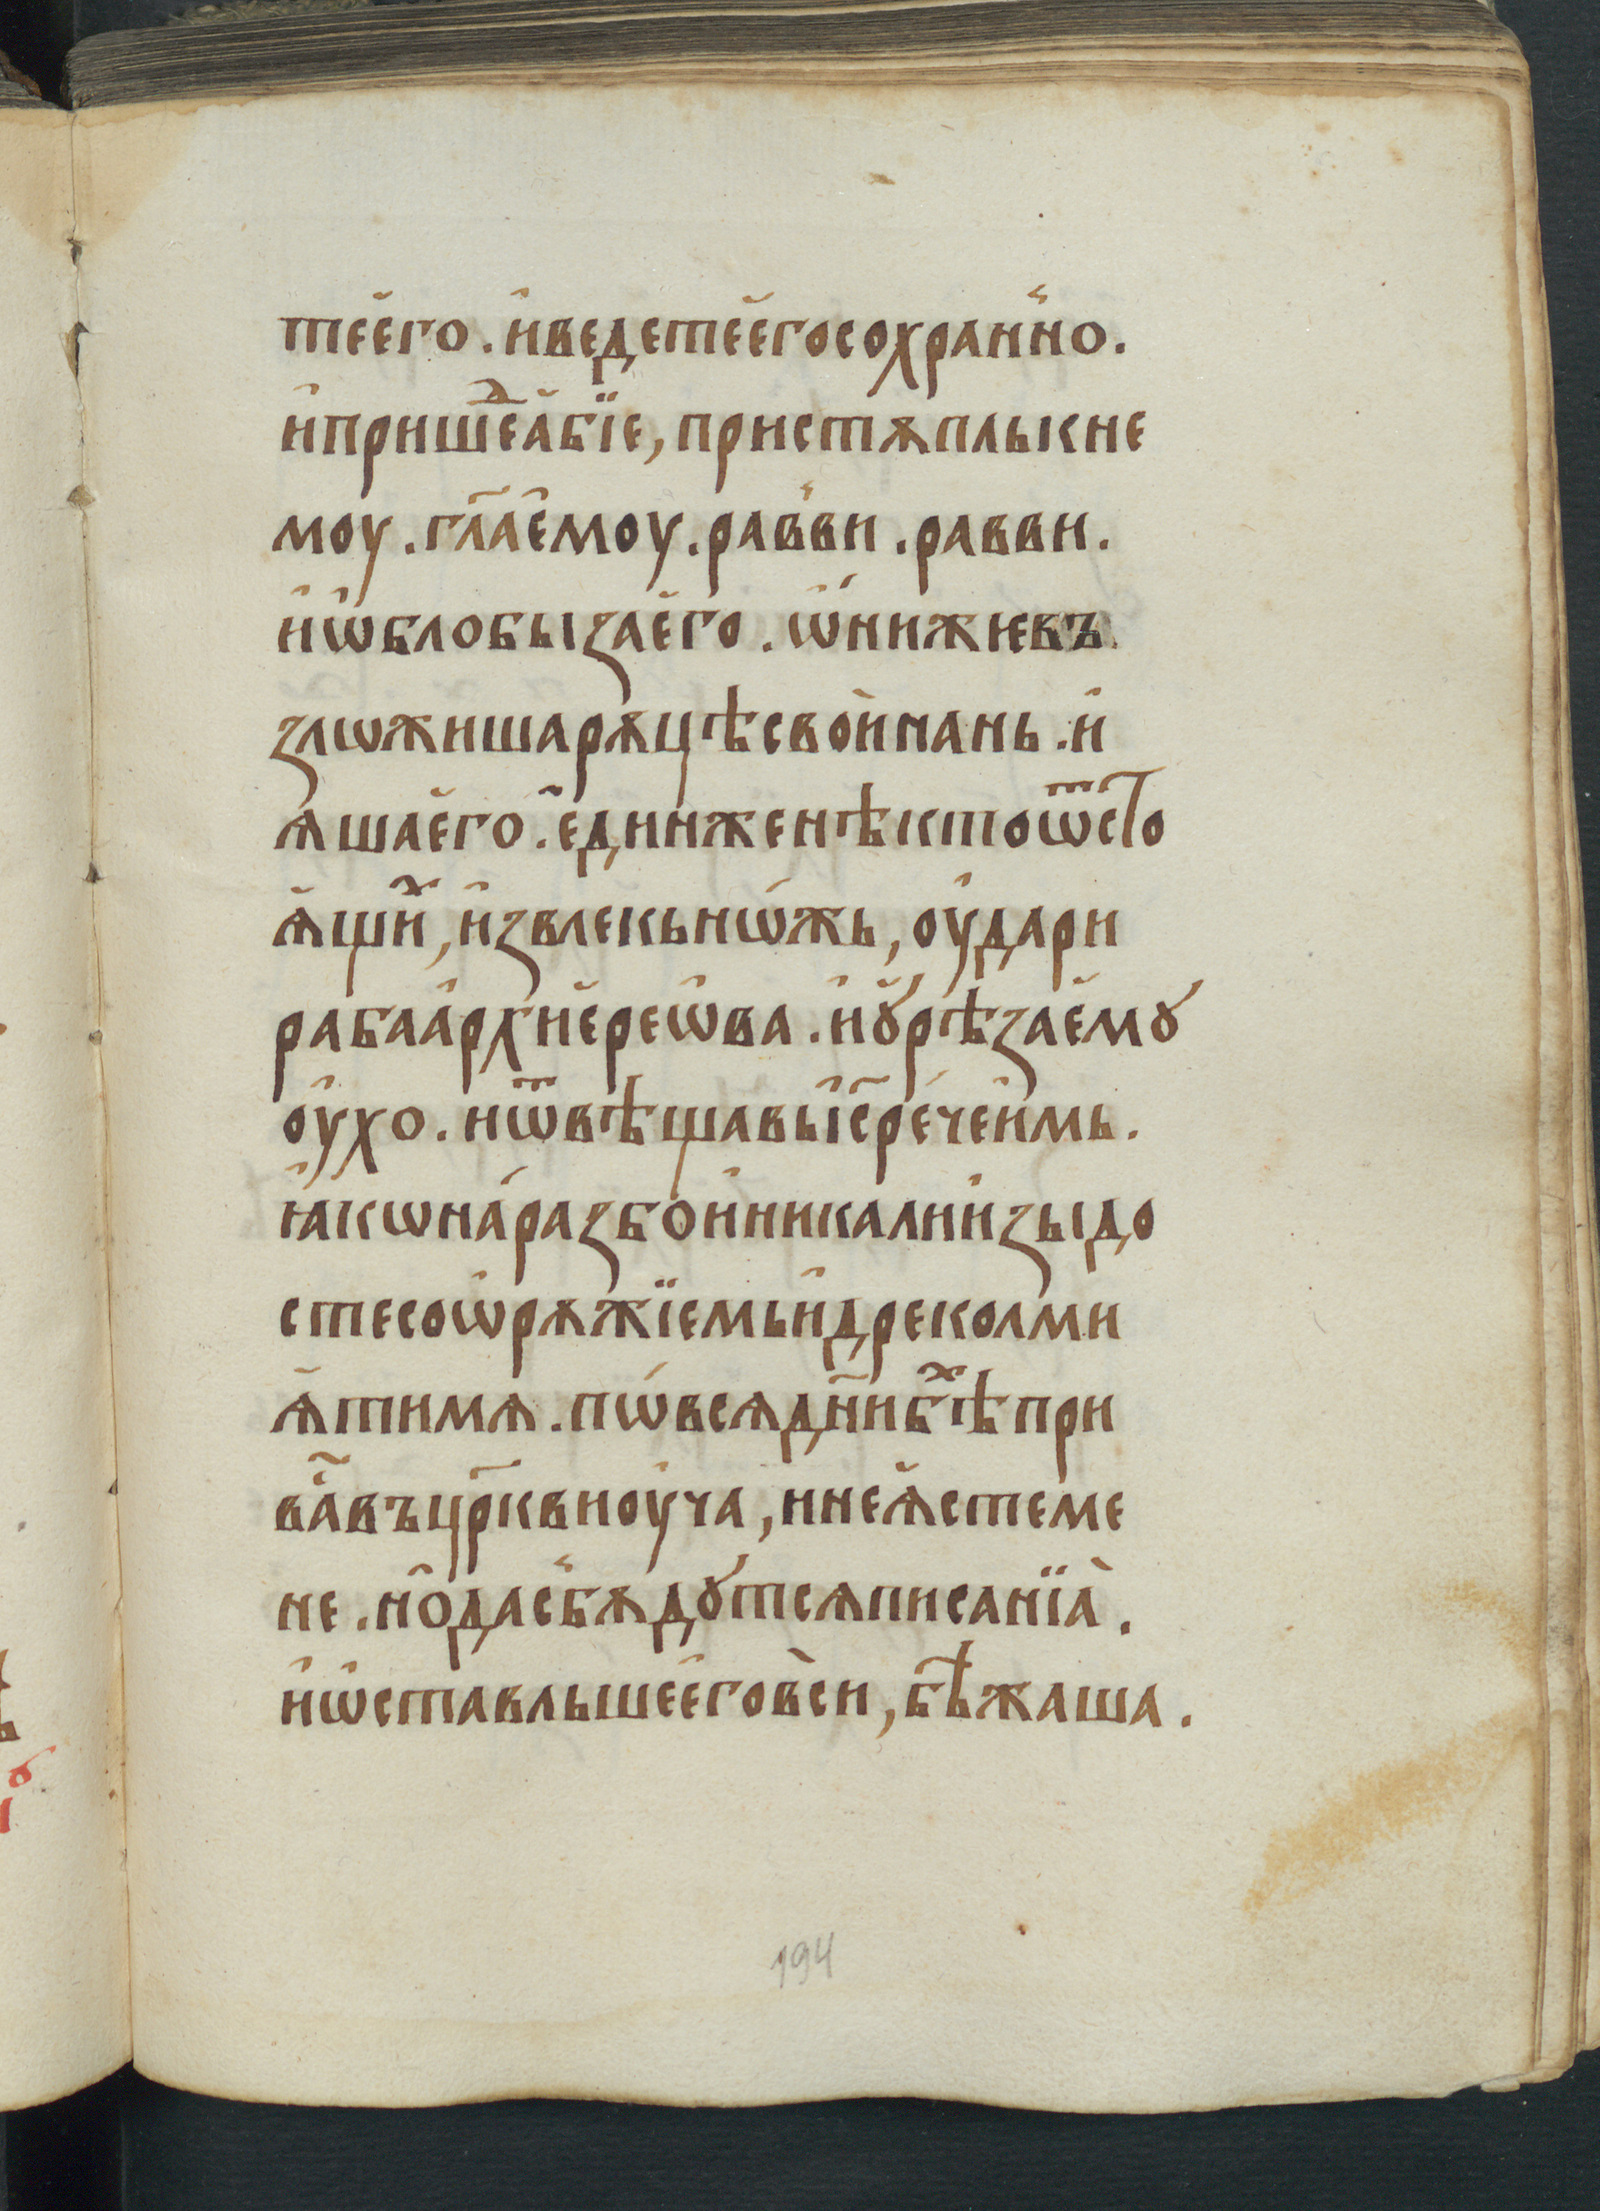 тее҆го . и҆ведетее҆госохранно .
и҆пришеⷣа҆бїе , пристѫплькне
моу . гл҃ае҆моу . равви . равви .
и҆ѡ҆блобызае҆го . ѡ҆нижѥвъ
злѡжишарѫцѣсвоѝнань . и҆
ѧшае҆го . е҆динженѣктоѿсто
ѧ҆щиⷯ , и҆звлекьнѡ́жь , оу҆дари
рабаа҆рхие҆рео҆ва . и҆ꙋ҆рѣзае҆мꙋ
оу҆хо . иѿвѣщавьі҆с҃рѐчеи҆мь .
ꙗ҆кѡна́разбои҆никалии҆зыдо
стесоѡ҆рѫжїемьи҆дреколми
ѧ҆тимѧ . пѡ́всѧдн҃ибⷯѣпри
ва҃въцр҃квиоу҆ча , инеѧ҆стеме
не . но҆дасбѫдꙋтсѧписанїа̀ .
и҆ѡ҆ставльшее҆говси , бѣжаша .
194